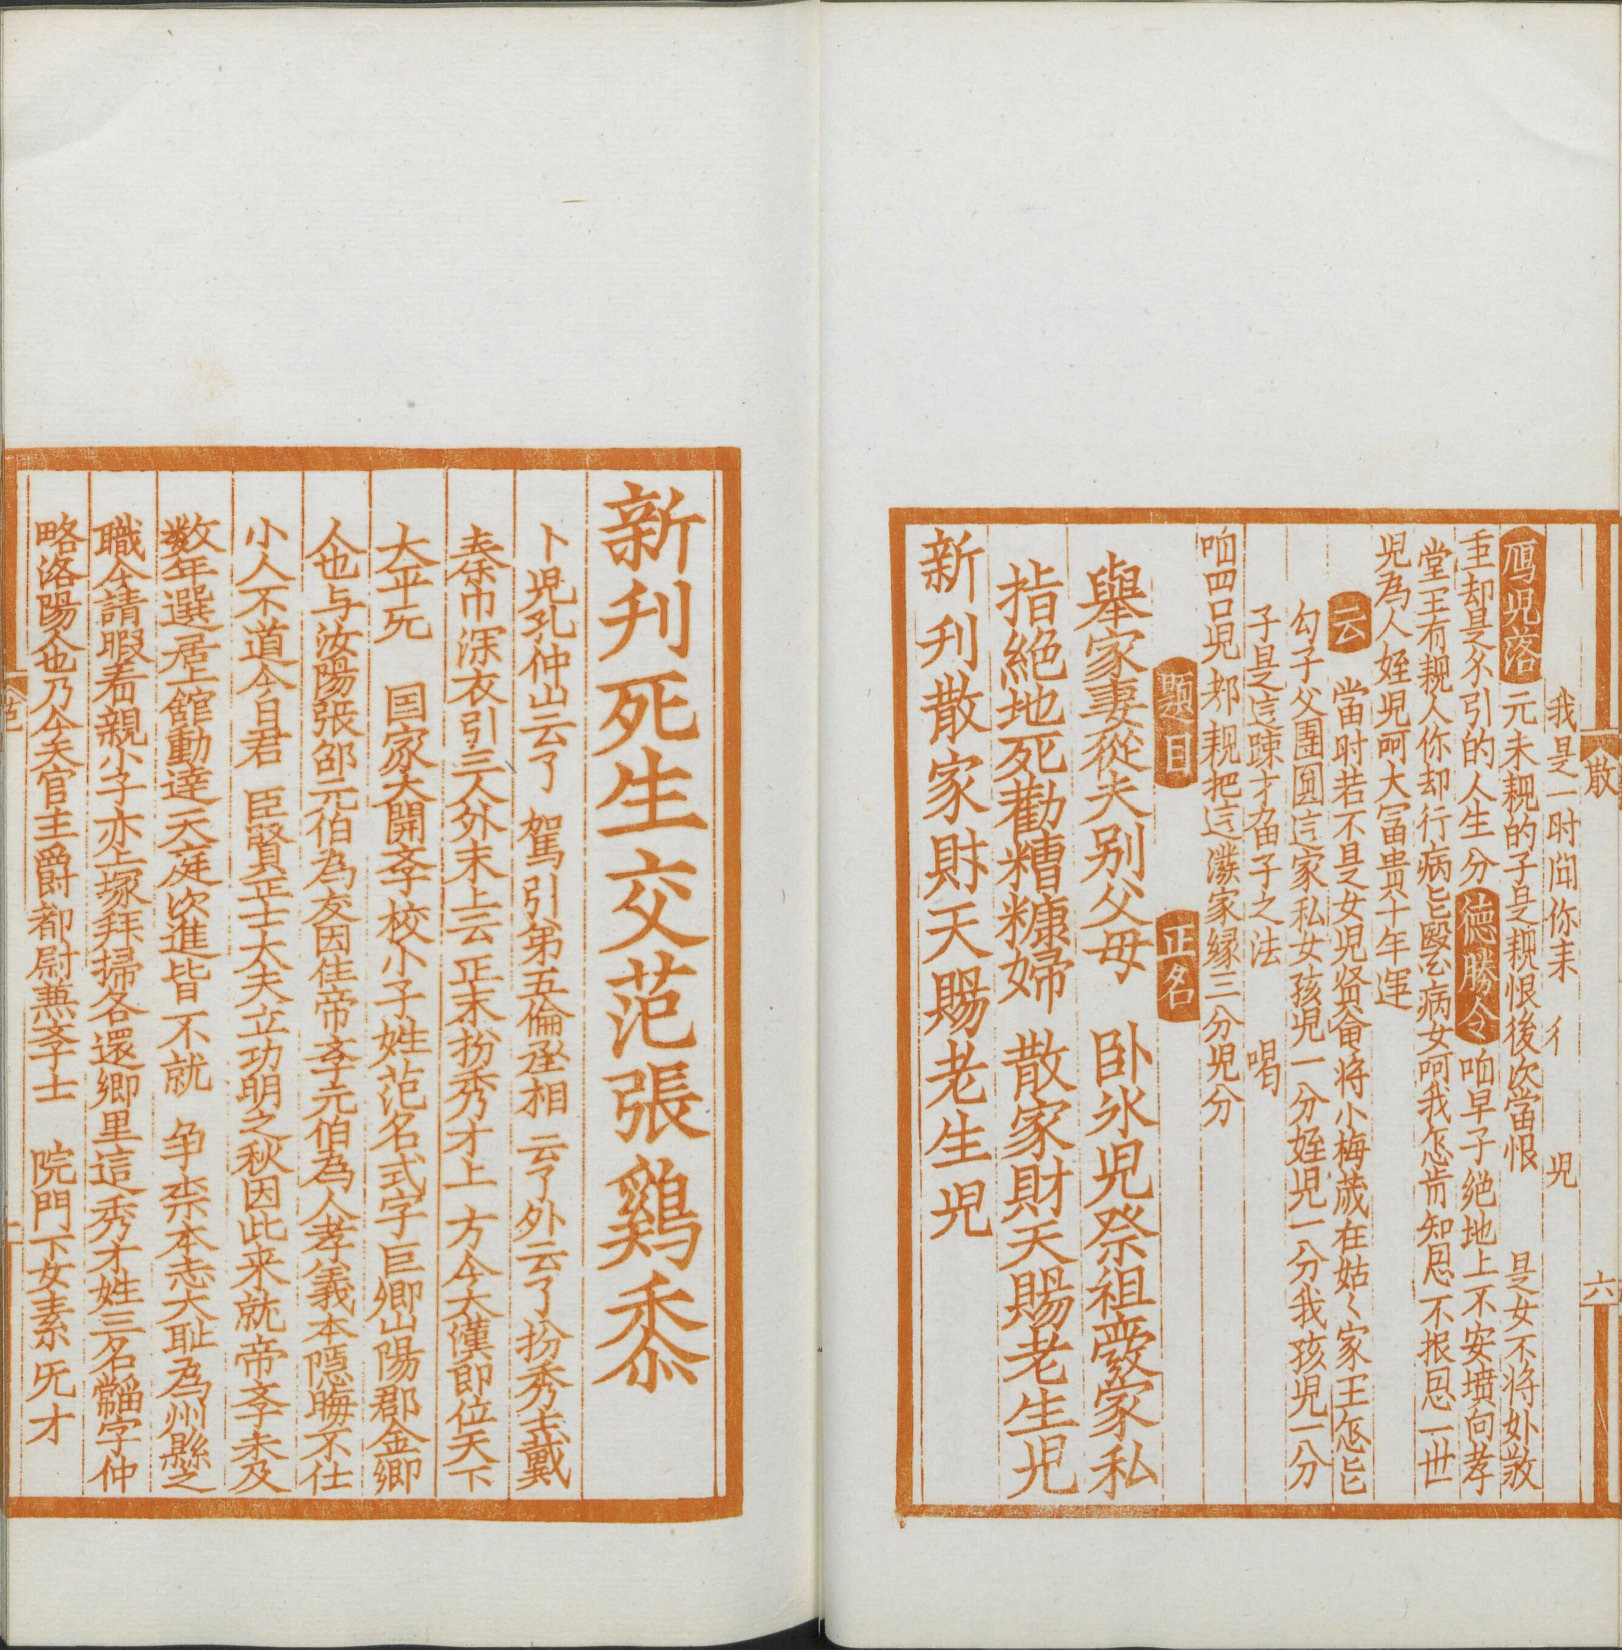 散
六
我是一时间你耒 彳 児
鴈児落 元未䙺的子是䙺恨後次當恨 是女不将处敚
至却是分外引的人生分 德勝令 咱早子绝地上不安墳向孝
堂王有䙺人你却行病㫖毉病女呵我怎肯知恩不报恩一世
児為人姪児呵大富貴十年運
云 當时若不是女児賢㑹将小梅蔵在姑〻家王怎㫖
勾子父團圎这家私女孩児一分姪児一分我孩児一分
子是这踈才畄子之法 喝
咱四口児邦䙺把这潑家縁三分児分
題目 正名
舉家妻從夫别父母 卧氷児祭祖發家私
指絶地死勸糟糠婦 散家財天賜老生児
新刋散家財天賜老生児
新刋死生交范張鷄黍
卜児孔仲山云了 駕引第五倫丞相 云了外云了扮秀士戴
秦巾深衣引三人外末上云正末扮秀才上 方今大漢即位天下
大平 国家大開斈校小子姓范名式字巨卿山陽郡金卿
人也与汝陽張邵元伯為友因徃帝斈元伯為人孝義本隱晦不仕
小人不道今自君 臣賢正士大夫立功明之秋因此来就帝斈未及
数年選居上舘動達天庭次進皆不就 争柰本志大耻為州縣之
職今請暇着親小子亦上塚拜掃各還卿里這秀才姓王名韜字仲
略洛陽人也乃今矣官主爵都尉蒹斈士 院門下女素无才